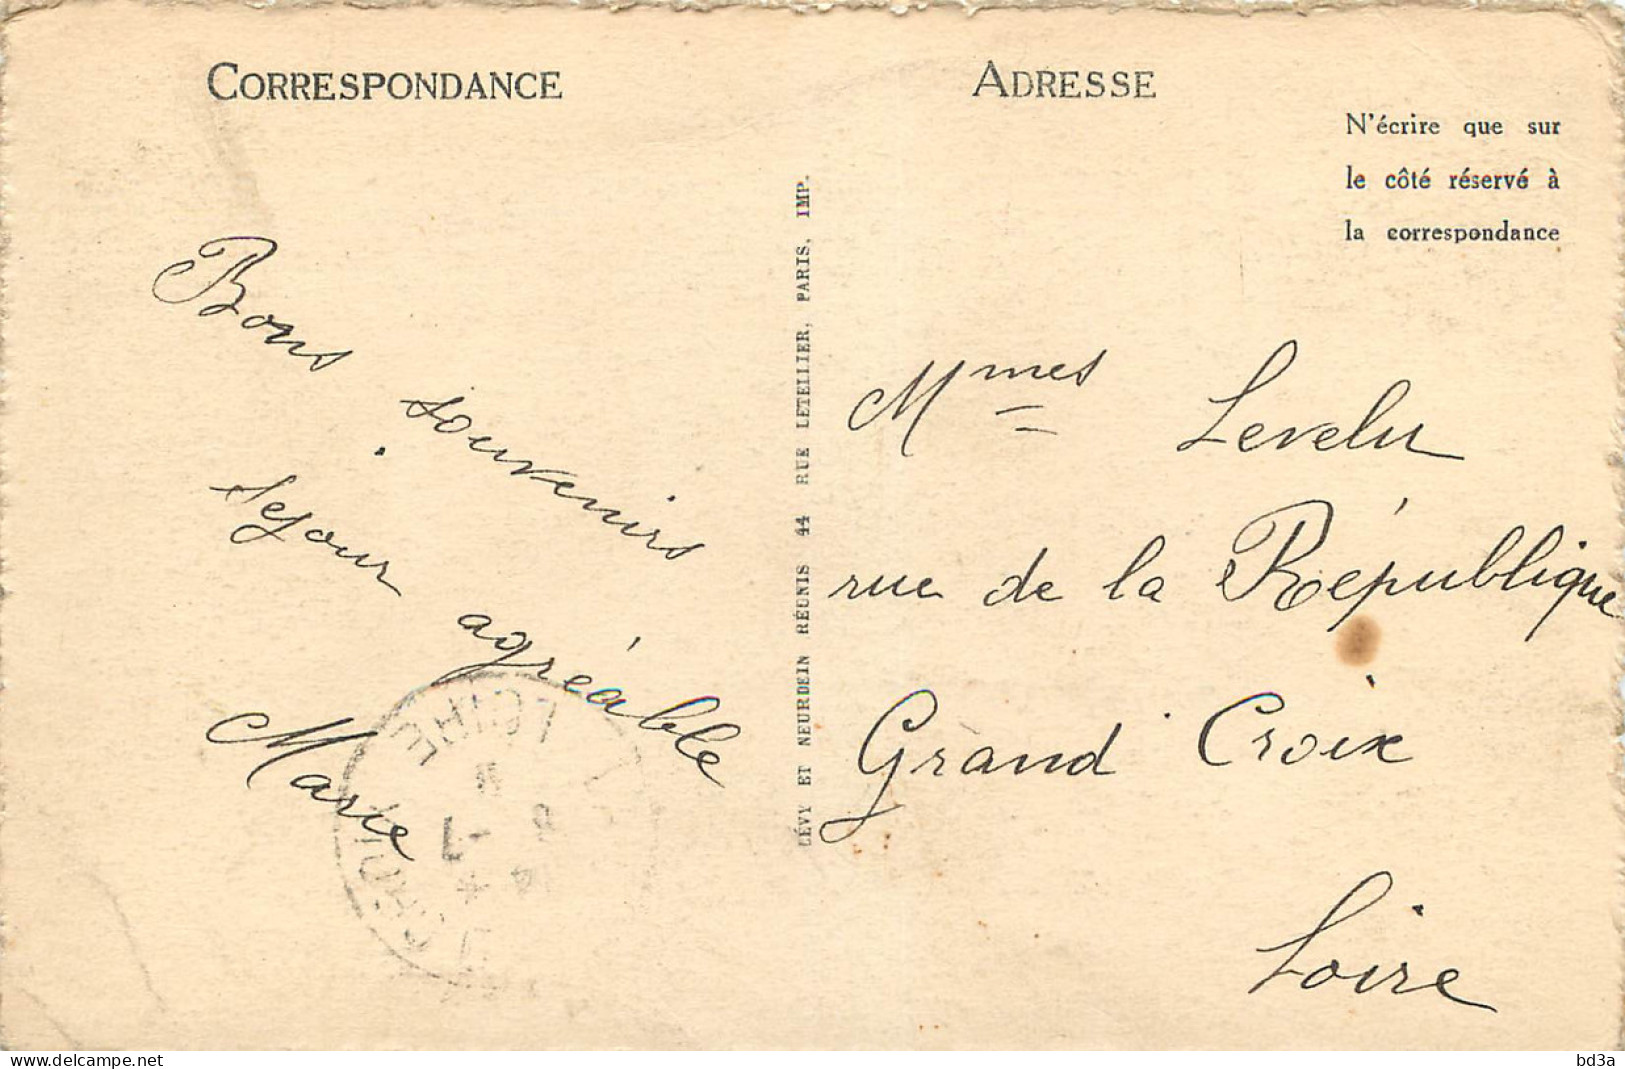 CORRESPONDANCE
ADRESSE
N'écrire que sur
le côté réservé à
la correspondance
Bons souvenirs
séjour agréable
Marie
LÉVY ET NEURDEIN RÉUNIS 44 RUE LETELLIER, PARIS, IMP.
Mmes Levelu
rue de la République
Grand Croix
Loire
LOIRE
delcampe.net
bd3a